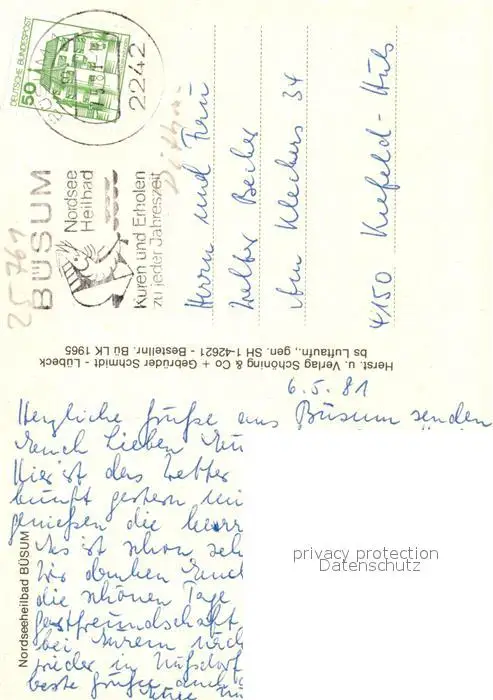 DEUTSCHE BUNDESPOST
50
2242
25761
BÜSUM
Nordsee
Heilbad
Kuren und Erholen
zu jeder Jahreszeit
Herrn und Frau
Walter Becker
Am Kleckers 34
4150 Krefeld-Hüls
Herst. u. Verlag Schöning & Co + Gebrüder Schmidt - Lübeck
bs Luftaufn., gen. SH 1-42621 - Bestellnr. Bü LK 1965
6.5.81
Herzliche Grüße aus Büsum senden
Euch Lieben
Hier ist das Wetter
gestern
genießen die
Es ist schon
Wir danken Euch
die schönen Tage
Gastfreundschaft,
bei Eurem
wieder in Nußdorf
beste Grüße auch
Nordseeheilbad BÜSUM
privacy protection
Datenschutz